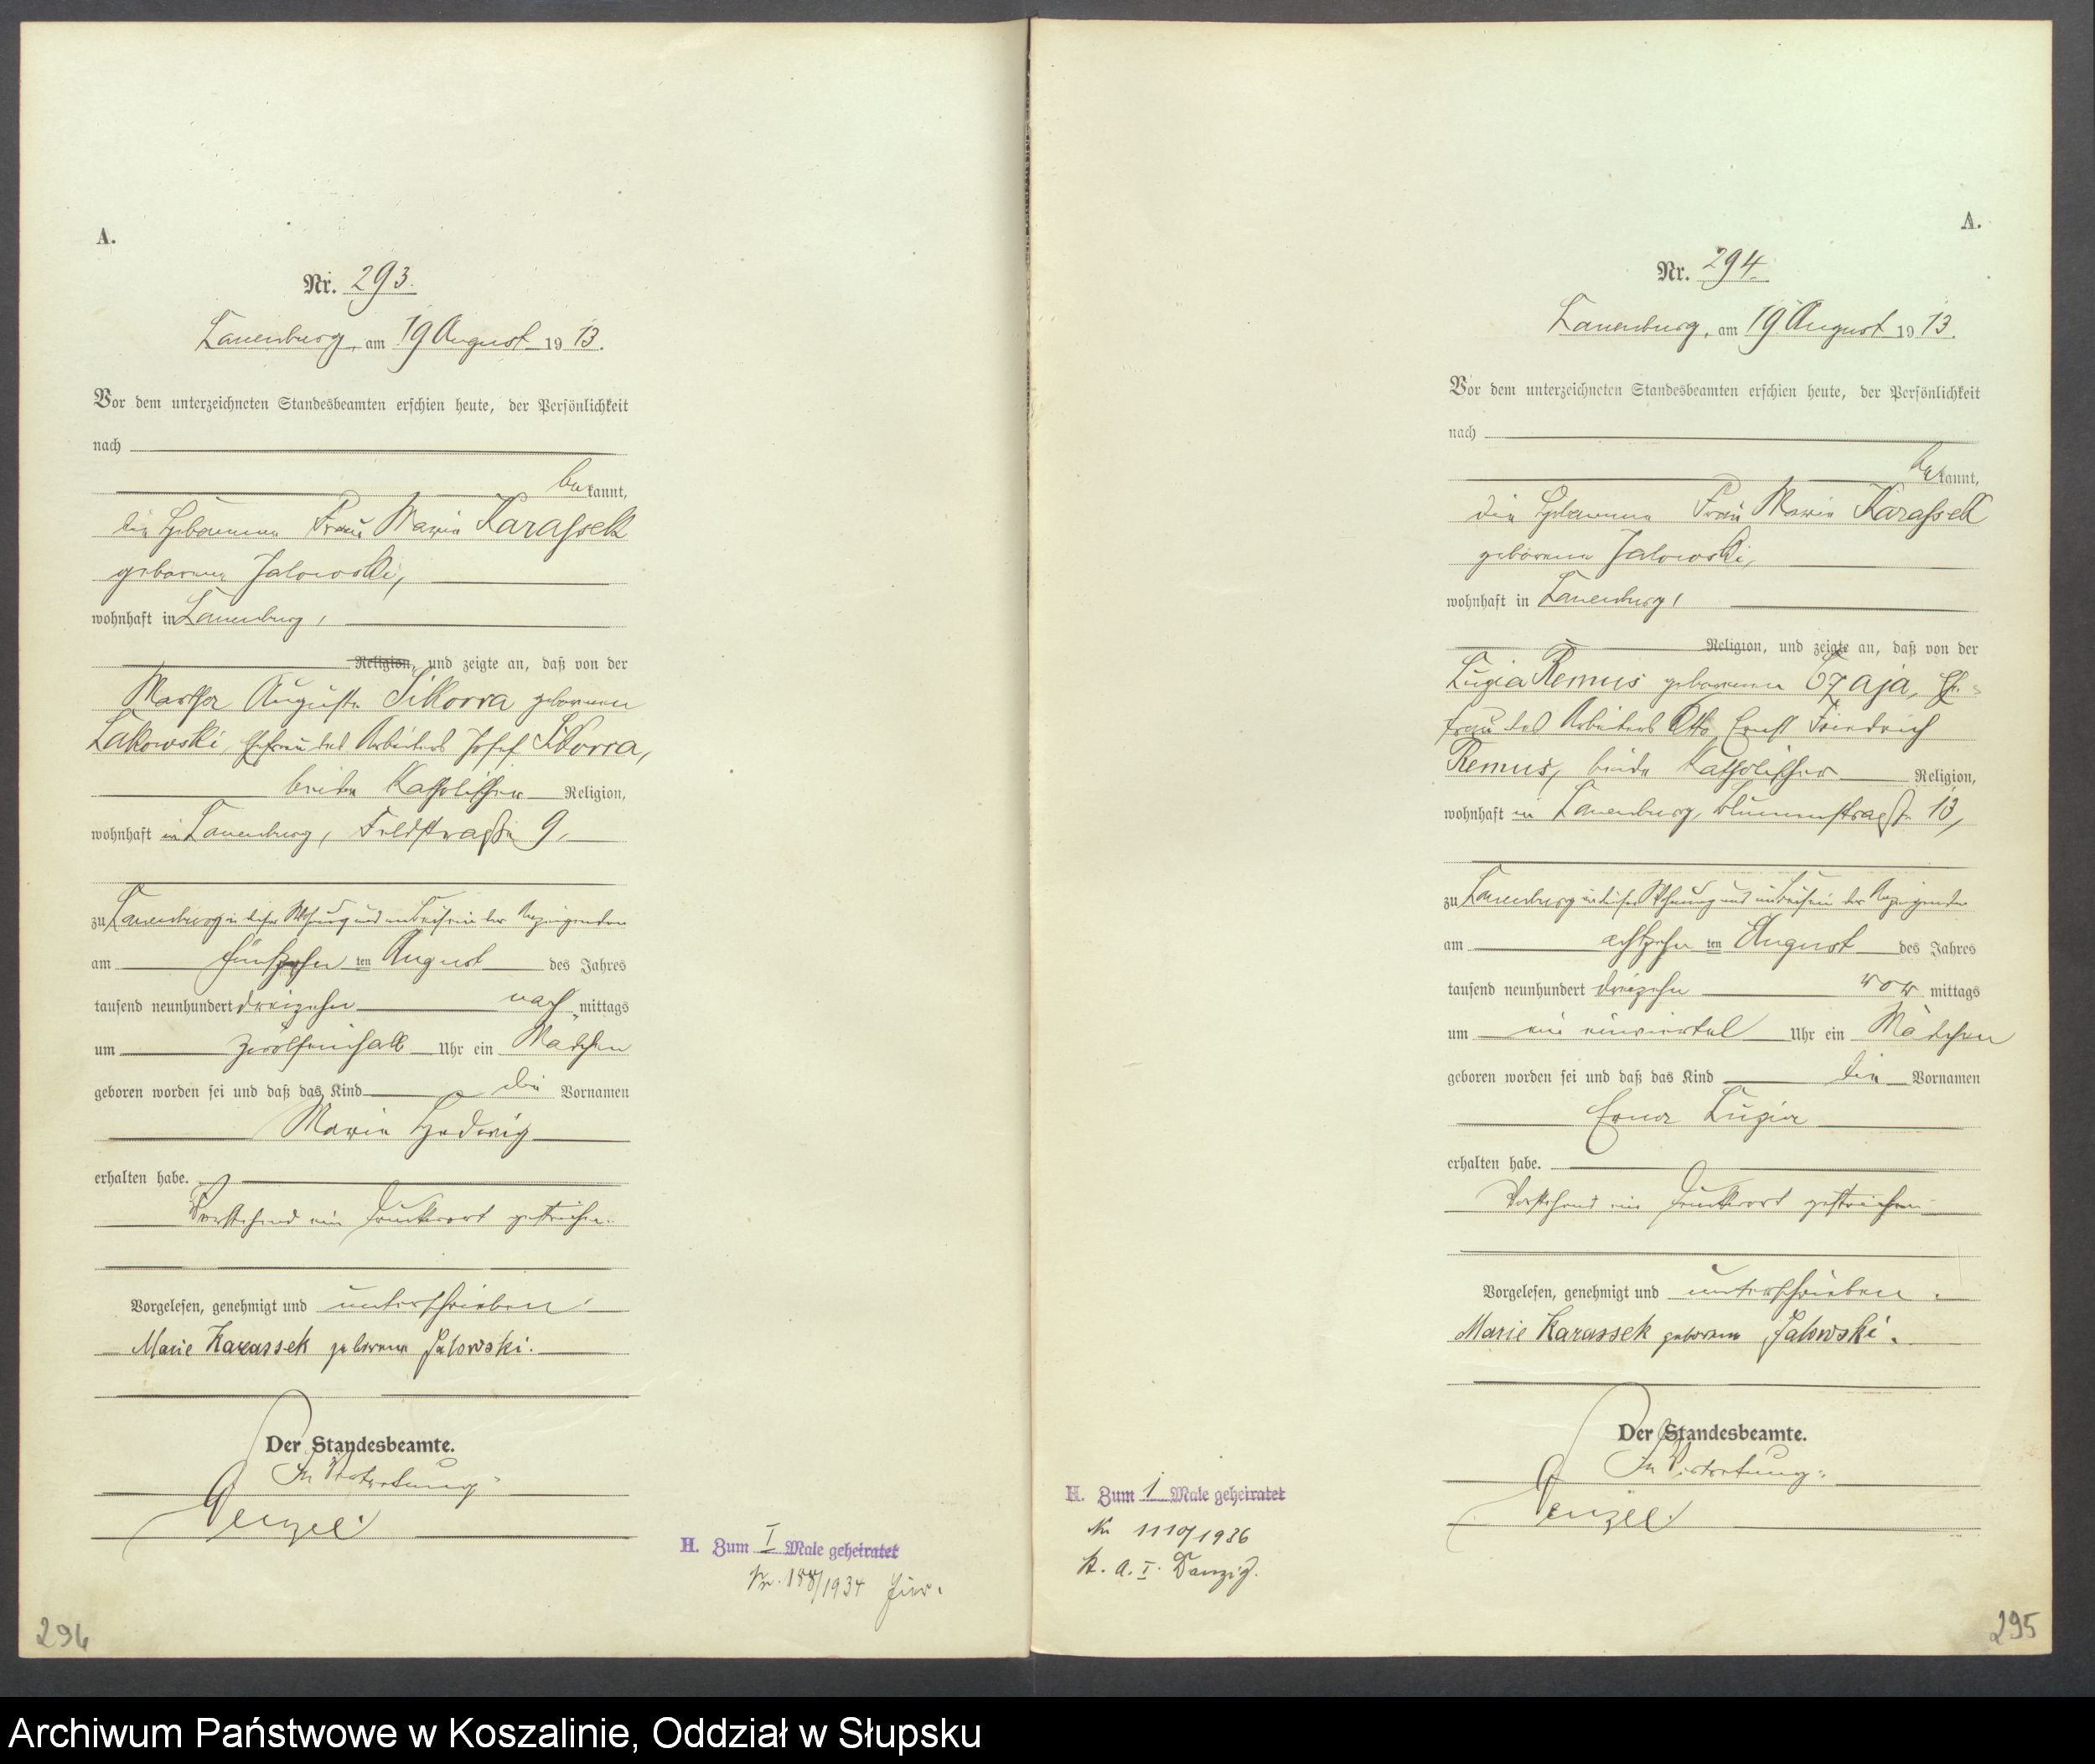 A.
Nr. 293.
Lauenburg, am 19 August 1913.
Vor dem unterzeichneten Standesbeamten erschien heute, der Persönlichkeit
nach
bekannt,
die Hebamme Frau Marie Karassek
geborene Jalowski,
wohnhaft in Lauenburg,
Religion, und zeigte an, daß von der
Martha Auguste Sikorra geborenen
Lakowski, Ehefrau des Arbeiters Josef Sikorra,
beide Katholischer Religion,
wohnhaft in Lauenburg, Feldstraße 9,
zu Lauenburg in dieser Wohnung und im Beisein der Anzeigenden
am fünfzehn ten August des Jahres
tausend neunhundert dreizehn nachmittags
um zwölfeinhalb Uhr ein Mädchen
geboren worden sei und daß das Kind die Vornamen
Marie Hedwig
erhalten habe.
Vorstehend ein Druckwort gestrichen.
Vorgelesen, genehmigt und unterschrieben
Marie Karassek geborene Jalowski.
Der Standesbeamte.
In Vertretung:
Penzel
H. Zum I Male geheiratet
Nr. 188/1934 hier.
294
A.
Nr. 294
Lauenburg, am 19 August 1913.
Vor dem unterzeichneten Standesbeamten erschien heute, der Persönlichkeit
nach
bekannt,
die Hebamme Frau Marie Karassek
geborene Jalowski,
wohnhaft in Lauenburg,
Religion, und zeigte an, daß von der
Luzia Remus geborenen Czaja, Ehe-
frau des Arbeiters Otto Ernst Friedrich
Remus, beide Katholischer Religion,
wohnhaft in Lauenburg, Blumenstraße 13,
zu Lauenburg in dieser Wohnung und im Beisein der Anzeigenden
am achtzehn ten August des Jahres
tausend neunhundert dreizehn vormittags
um ein einviertel Uhr ein Mädchen
geboren worden sei und daß das Kind die Vornamen
Erna Luzia
erhalten habe.
Vorstehend ein Druckwort gestrichen
Vorgelesen, genehmigt und unterschrieben.
Marie Karassek geborene Jalowski.
Der Standesbeamte.
In Vertretung:
Penzel
H. Zum 1 Male geheiratet
Nr 1110/1936
St. A. I. Danzig.
295
Archiwum Państwowe w Koszalinie, Oddział w Słupsku